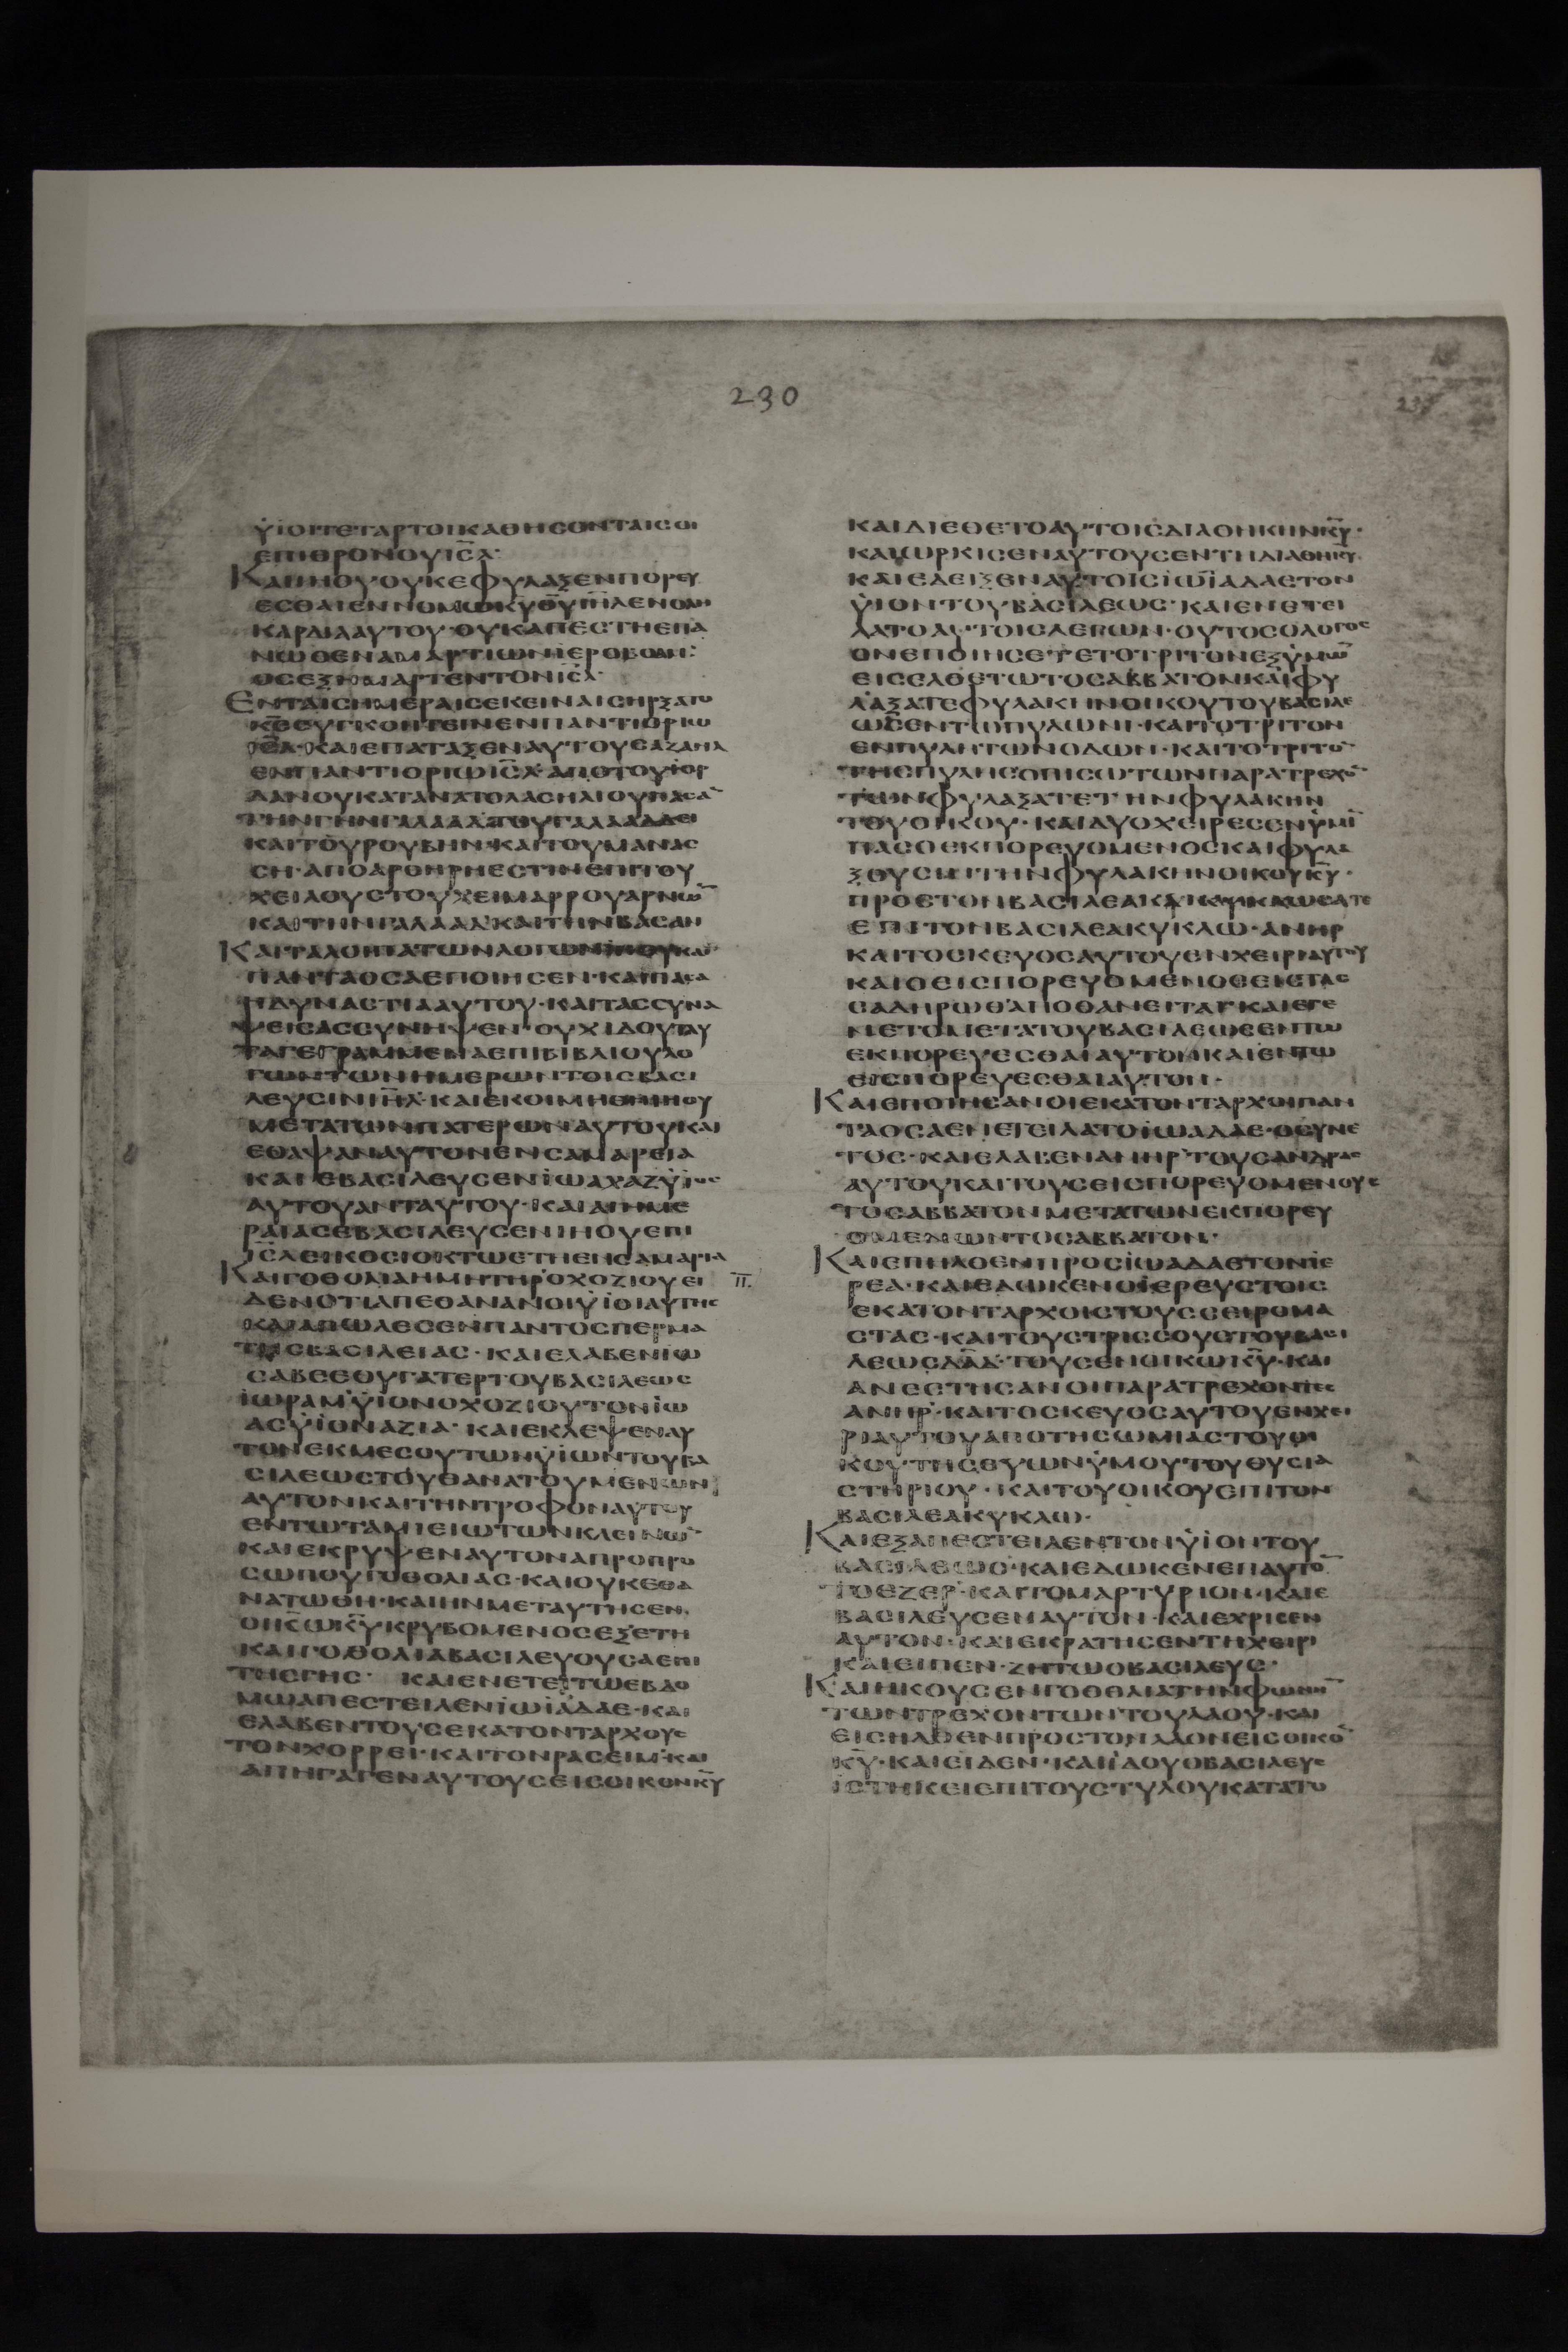 230
ΫΙΟΙΤΕΤΑΡΤΟΙΚΑΘΗСΟΝΤΑΙСΟΙ
ΕΠΙΘΡΟΝΟΥΙС̅Λ·
ΚΑΙΙΗΟΥΟΥΚΕΦΥΛΑΞΕΝΠΟΡΕΥ
ΕСΘΑΙΕΝΝΟΜΩΚ̅Υ̅Θ̅Υ̅Ι̅Η̅Λ̅ΕΝΟΛΗ
ΚΑΡΔΙΑΑΥΤΟΥ·ΟΥΚΑΠΕСΤΗΕΠΑ
ΝΩΘΕΝΑΜΑΡΤΙΩΝΙΕΡΟΒΟΑΜ·
ΟСΕΞΗΜΑΡΤΕΝΤΟΝΙС̅Λ·
ΕΝΤΑΙСΗΜΕΡΑΙСΕΚΕΙΝΑΙСΗΡΞΑΤΟ
Κ̅С̅СΥΓΚΟΠΤΕΙΝΕΝΠΑΝΤΙΟΡΙΩ
ΙС̅Λ·ΚΑΙΕΠΑΤΑΞΕΝΑΥΤΟΥСΑΖΑΗΛ
ΕΝΠΑΝΤΙΟΡΙΩΙС̅Λ·ΑΠΟΤΟΥΙΟΡ
ΔΑΝΟΥΚΑΤΑΝΑΤΟΛΑСΗΛΙΟΥΠΑСΑ̅
ΤΗΝΓΗΝΓΑΛΑΑΔΤΟΥΓΑΛΑΑΔΔΕΙ
ΚΑΙΤΟΥΡΟΥΒΗΝ·ΚΑΙΤΟΥΜΑΝΑС
СΗ·ΑΠΟΑΡΟΗΡΗΕСΤΙΝΕΠΙΤΟΥ
ΧΕΙΛΟΥСΤΟΥΧΕΙΜΑΡΡΟΥΑΡΝΩ̅
ΚΑΙΤΗΝΓΑΛΑΑΔ·ΚΑΙΤΗΝΒΑСΑΝ
ΚΑΙΤΑΛΟΙΠΑΤΩΝΛΟΓΩΝΙΗΟΥΚΑΙ
ΠΑΝΤΑΟСΑΕΠΟΙΗСΕΝ·ΚΑΙΠΑСΑ
ΗΔΥΝΑСΤΙΑΑΥΤΟΥ·ΚΑΙΤΑССΥΝΑ
ΨΕΙСΑССΥΝΗΨΕΝ·ΟΥΧΙΔΟΥΤΑΥ
ΤΑΓΕΓΡΑΜΜΕΝΑΕΠΙΒΙΒΛΙΟΥΛΟ
ΓΩΝΤΩΝΗΜΕΡΩΝΤΟΙСΒΑСΙ
ΛΕΥСΙΝΙΗ̅Λ·ΚΑΙΕΚΟΙΜΗΘΗΙΗΟΥ
ΜΕΤΑΤΩΝΠΑΤΕΡΩΝΑΥΤΟΥΚΑΙ
ΕΘΑΨΑΝΑΥΤΟΝΕΝСΑΜΑΡΕΙΑ
ΚΑΙΕΒΑСΙΛΕΥСΕΝΪΩΑΧΑΖΫΙΟС
ΑΥΤΟΥΑΝΤΑΥΤΟΥ·ΚΑΙΑΙΗΜΕ
ΡΑΙΑСΕΒΑСΙΛΕΥСΕΝΙΗΟΥΕΠΙ
ΙС̅ΛΕΙΚΟСΙΟΚΤΩΕΤΗΕΝСΑΜΑΡΙΑ
ΚΑΙΓΟΘΟΛΙΑΗΜΗΤΗΡΟΧΟΖΙΟΥΕΙ
ΔΕΝΟΤΙΑΠΕΘΑΝΑΝΟΙΫΙΟΙΑΥΤΗС
ΚΑΙΑΠΩΛΕСΕΝΠΑΝΤΟСΠΕΡΜΑ
ΤΗСΒΑСΙΛΕΙΑС·ΚΑΙΕΛΑΒΕΝΙΩ
СΑΒΕΕΘΥΓΑΤΕΡΤΟΥΒΑСΙΛΕΩС
ΪΩΡΑΜΫΙΟΝΟΧΟΖΙΟΥΤΟΝΪΩ
ΑСΫΙΟΝΑΖΙΑ·ΚΑΙΕΚΛΕΨΕΝΑΥ
ΤΟΝΕΚΜΕСΟΥΤΩΝΫΙΩΝΤΟΥΒΑ
СΙΛΕΩСΤΟΥΘΑΝΑΤΟΥΜΕΝΩΝ
ΑΥΤΟΝΚΑΙΤΗΝΤΡΟΦΟΝΑΥΤΟΥ
ΕΝΤΩΤΑΜΙΕΙΩΤΩΝΚΛΕΙΝΩ̅
ΚΑΙΕΚΡΥΨΕΝΑΥΤΟΝΑΠΡΟΠΡΟ
СΩΠΟΥΓΟΘΟΛΙΑС·ΚΑΙΟΥΚΕΘΑ
ΝΑΤΩΘΗ·ΚΑΙΗΝΜΕΤΑΥΤΗСΕΝ
ΟΙΚΩΚ̅Υ̅ΚΡΥΒΟΜΕΝΟСΕΞΕΤΗ
ΚΑΙΓΟΘΟΛΙΑΒΑСΙΛΕΥΟΥСΑΕΠΙ
ΤΗСΓΗС· ΚΑΙΕΝΕΤΕΙΤΩΕΒΔΟ
ΜΩΑΠΕСΤΕΙΛΕΝΪΩΙΑΔΑΕ·ΚΑΙ
ΕΛΑΒΕΝΤΟΥСΕΚΑΤΟΝΤΑΡΧΟΥС
ΤΟΝΧΟΡΡΕΙ·ΚΑΙΤΟΝΡΑСΕΙΜ·ΚΑΙ
ΑΠΗΓΑΓΕΝΑΥΤΟΥСΕΙСΟΙΚΟΝΚ̅Υ̅
II.
ΚΑΙΔΙΕΘΕΤΟΑΥΤΟΙСΔΙΑΘΗΚΗΝΚ̅Υ̅·
ΚΑΙΩΡΚΙСΕΝΑΥΤΟΥСΕΝΤΗΔΙΑΘΗΚΗ
ΚΑΙΕΔΕΙΞΕΝΑΥΤΟΙСΪΩΙΑΔΑΕΤΟΝ
ΫΙΟΝΤΟΥΒΑСΙΛΕΩС·ΚΑΙΕΝΕΤΕΙ
ΛΑΤΟΑΥΤΟΙСΛΕΓΩΝ·ΟΥΤΟСΟΛΟΓΟС
ΟΝΕΠΟΙΗСΕΤΕΤΟΤΡΙΤΟΝΕΞΫΜΩ̅
ΕΙСΕΛΘΕΤΩΤΟСΑΒΒΑΤΟΝΚΑΙΦΥ
ΛΑΞΑΤΕΦΥΛΑΚΗΝΟΙΚΟΥΤΟΥΒΑСΙΛΕ
ΩСΕΝΤΩΠΥΛΩΝΙ·ΚΑΙΤΟΤΡΙΤΟΝ
ΕΝΠΥΛΗΤΩΝΟΔΩΝ·ΚΑΙΤΟΤΡΙΤΟ̅
ΤΗСΠΥΛΗСΟΠΙСΩΤΩΝΠΑΡΑΤΡΕΧΟ̅
ΤΩΝΚΑΙΦΥΛΑΞΑΤΕΤΗΝΦΥΛΑΚΗΝ
ΤΟΥΟΙΚΟΥ·ΚΑΙΔΥΟΧΕΙΡΕСΕΝΫΜΙ̅
ΠΑСΟΕΚΠΟΡΕΥΟΜΕΝΟСΚΑΙΦΥΛΑ
ΞΟΥСΙΝΤΗΝΦΥΛΑΚΗΝΟΙΚΟΥΚ̅Υ̅·
ΠΡΟСΤΟΝΒΑСΙΛΕΑΚΑΙΚΥΚΛΩСΑΤΕ
ΕΠΙΤΟΝΒΑСΙΛΕΑΚΥΚΛΩ·ΑΝΗΡ
ΚΑΙΤΟСΚΕΥΟСΑΥΤΟΥΕΝΧΕΙΡΙΑΥΤΟΥ
ΚΑΙΟΕΙСΠΟΡΕΥΟΜΕΝΟСΕΙСΤΑС
СΑΔΗΡΩΘΑΠΟΘΑΝΕΙΤΑΙ·ΚΑΙΕΓΕ
ΝΕΤΟΜΕΤΑΤΟΥΒΑСΙΛΕΩСΕΝΤΩ
ΕΚΠΟΡΕΥΕСΘΑΙΑΥΤΟΝΚΑΙΕΝΤΩ
ΕΙСΠΟΡΕΥΕСΘΑΙΑΥΤΟΝ·
ΚΑΙΕΠΟΙΗСΑΝΟΙΕΚΑΤΟΝΤΑΡΧΟΙΠΑΝ
ΤΑΟСΑΕΝΕΤΕΙΛΑΤΟΪΩΑΔΑΕ·ΟСΥΝΕ
ΤΟС·ΚΑΙΕΛΑΒΕΝΑΝΗΡΤΟΥСΑΝΔΡΑС
ΑΥΤΟΥΚΑΙΤΟΥСΕΙСΠΟΡΕΥΟΜΕΝΟΥС
ΤΟСΑΒΒΑΤΟΝΜΕΤΑΤΩΝΕΚΠΟΡΕΥ
ΟΜΕΝΩΝΤΟСΑΒΒΑΤΟΝ·
ΚΑΙΕΠΗΛΘΕΝΠΡΟСΪΩΑΔΑΕΤΟΝΪΕ
ΡΕΑ·ΚΑΙΕΔΩΚΕΝΟΪΕΡΕΥСΤΟΙС
ΕΚΑΤΟΝΤΑΡΧΟΙСΤΟΥССΕΙΡΟΜΑ
СΤΑС·ΚΑΙΤΟΥСΤΡΙССΟΥСΤΟΥΒΑСΙ
ΛΕΩСΔΑ̅Δ̅·ΤΟΥСΕΝΟΙΚΩΚ̅Υ̅·ΚΑΙ
ΑΝΕСΤΗСΑΝΟΙΠΑΡΑΤΡΕΧΟΝΤΕС
ΑΝΗΡ·ΚΑΙΤΟСΚΕΥΟСΑΥΤΟΥΕΝΧΕΙ
ΡΙΑΥΤΟΥΑΠΟΤΗСΩΜΙΑСΤΟΥΟΙ
ΚΟΥΤΗСΕΥΩΝΫΜΟΥΤΟΥΘΥСΙΑ
СΤΗΡΙΟΥ·ΚΑΙΤΟΥΟΙΚΟΥΕΠΙΤΟΝ
ΒΑСΙΛΕΑΚΥΚΛΩ·
ΚΑΙΕΞΑΠΕСΤΕΙΛΕΝΤΟΝΫΙΟΝΤΟΥ
ΒΑСΙΛΕΩС·ΚΑΙΕΔΩΚΕΝΕΠΑΥΤΟ̅
ΙΟΕΖΕΡ·ΚΑΙΤΟΜΑΡΤΥΡΙΟΝ·ΚΑΙΕ
ΒΑСΙΛΕΥСΕΝΑΥΤΟΝ·ΚΑΙΕΧΡΙСΕΝ
ΑΥΤΟΝ·ΚΑΙΕΚΡΑΤΗСΕΝΤΗΧΕΙΡΙ
ΚΑΙΕΙΠΕΝ·ΖΗΤΩΟΒΑСΙΛΕΥС·
ΚΑΙΗΚΟΥСΕΝΓΟΘΟΛΙΑΤΗΝΦΩΝΗ̅
ΤΩΝΤΡΕΧΟΝΤΩΝΤΟΥΛΑΟΥ·ΚΑΙ
ΕΙСΗΛΘΕΝΠΡΟСΤΟΝΛΑΟΝΕΙСΟΙΚΟ̅
Κ̅Υ̅·ΚΑΙΕΙΔΕΝ·ΚΑΙΪΔΟΥΟΒΑСΙΛΕΥС
ΙСΤΗΚΕΙΕΠΙΤΟΥСΤΥΛΟΥΚΑΤΑΤΟ